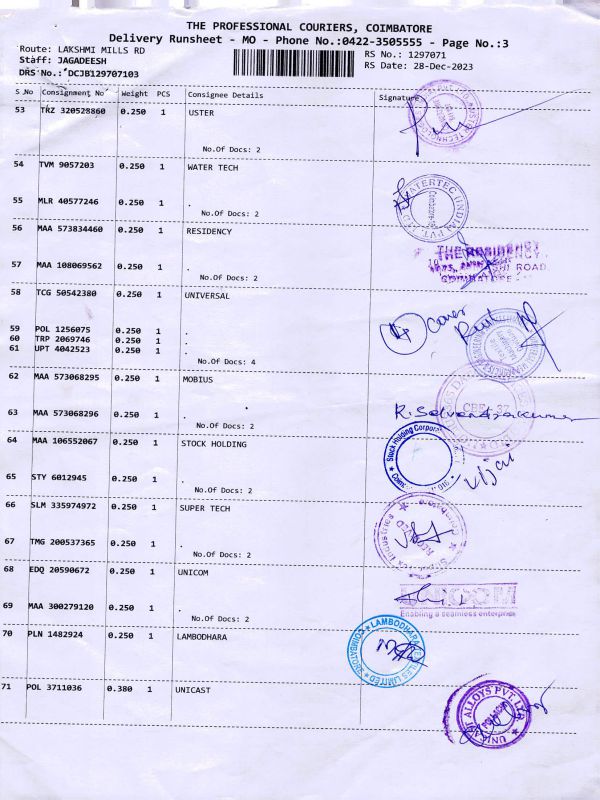 THE PROFESSIONAL COURIERS, COIMBATORE
Delivery Runsheet - MO - Phone No.:0422-3505555 - Page No.:3
Route: LAKSHMI MILLS RD RS No.: 1297071
Staff: JAGADEESH RS Date: 28-Dec-2023
DRS No.: DCJB129707103
S No Consignment No Weight PCS Consignee Details Signature
53 TRZ 320528860 0.250 1 USTER
No.Of Docs: 2
54 TVM 9057203 0.250 1 WATER TECH
55 MLR 40577246 0.250 1 .
No.Of Docs: 2
WATERTEC (INDIA) PVT.
56 MAA 573834460 0.250 1 RESIDENCY
THE RESIDENCY
57 MAA 108069562 0.250 1 .
ROAD
COIMBATORE
No.Of Docs: 2
58 TCG 50542380 0.250 1 UNIVERSAL
59 POL 1256075 0.250 1 .
60 TRP 2069746 0.250 1 .
61 UPT 4042523 0.250 1 .
No.Of Docs: 4
62 MAA 573068295 0.250 1 MOBIUS
CBE - 37
63 MAA 573068296 0.250 1 .
No.Of Docs: 2
R. Selvendrakumar
64 MAA 106552067 0.250 1 STOCK HOLDING
Stock Holding Corporat
Vijai
65 STY 6012945 0.250 1 .
No.Of Docs: 2
66 SLM 335974972 0.250 1 SUPER TECH
Industries Coimbatore
67 TMG 200537365 0.250 1 .
No.Of Docs: 2
68 EDQ 20590672 0.250 1 UNICOM
69 MAA 300279120 0.250 1 .
Enabling a seamless enterprise
No.Of Docs: 2
70 PLN 1482924 0.250 1 LAMBODHARA
LAMBODHARA TEXTILES LIMITED COIMBATORE
71 POL 3711036 0.380 1 UNICAST
UNICAST ALLOYS PVT. LTD